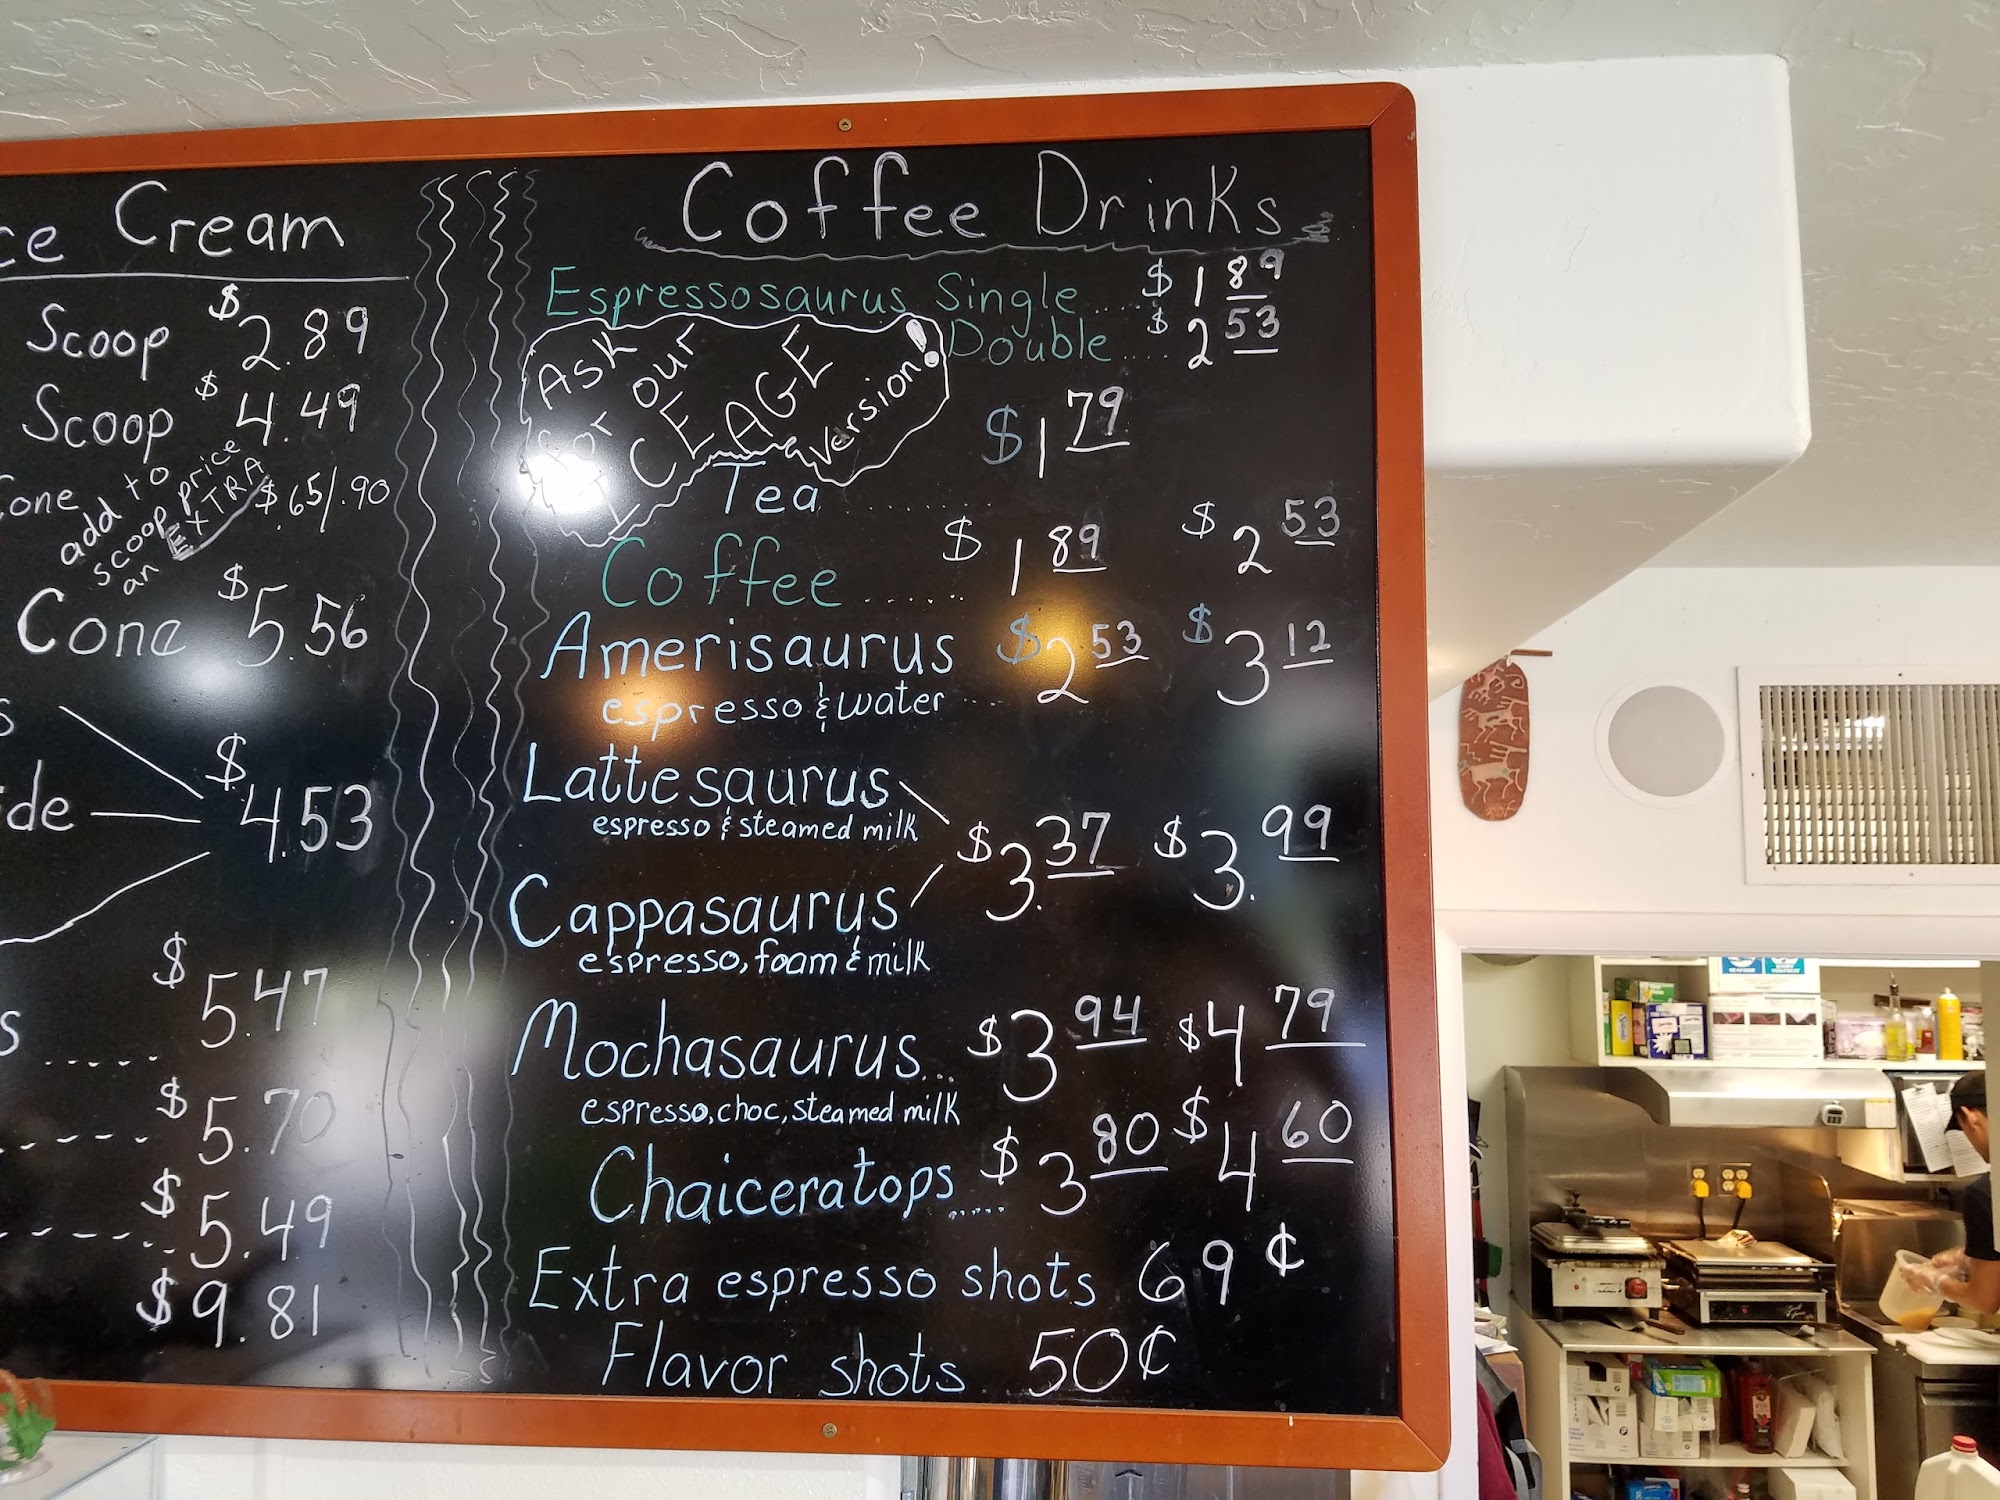 ce Cream
Scoop $2.89
Scoop $4.49
Cone add to scoop price an EXTRA $.65/.90
Cone $5.56
s
ide $4.53
$5.47
s .....
$5.70
$5.49
$9.81
Coffee Drinks
Espressosaurus Single .... $1 89
Double .... $2 53
Ask for our ICE AGE version!
Tea ........ $1 79
Coffee ...... $1 89 $2 53
Amerisaurus $2 53 $3 12
espresso & water ....
Lattesaurus
espresso & steamed milk
$3.37 $3.99
Cappasaurus
espresso, foam & milk
Mochasaurus... $3 94 $4 79
espresso, choc, steamed milk
Chaiceratops ..... $3 80 $4 60
Extra espresso shots 69¢
Flavor shots 50¢